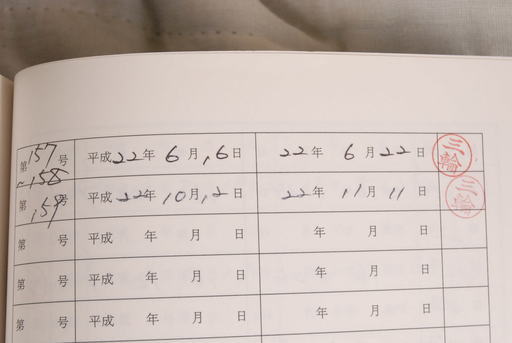 第157号 平成22年6月16日 22年6月22日 三輪
~158
第159号 平成22年10月12日 22年11月11日 三輪
第 号 平成 年 月 日 年 月 日
第 号 平成 年 月 日 年 月 日
第 号 平成 年 月 日 年 月 日